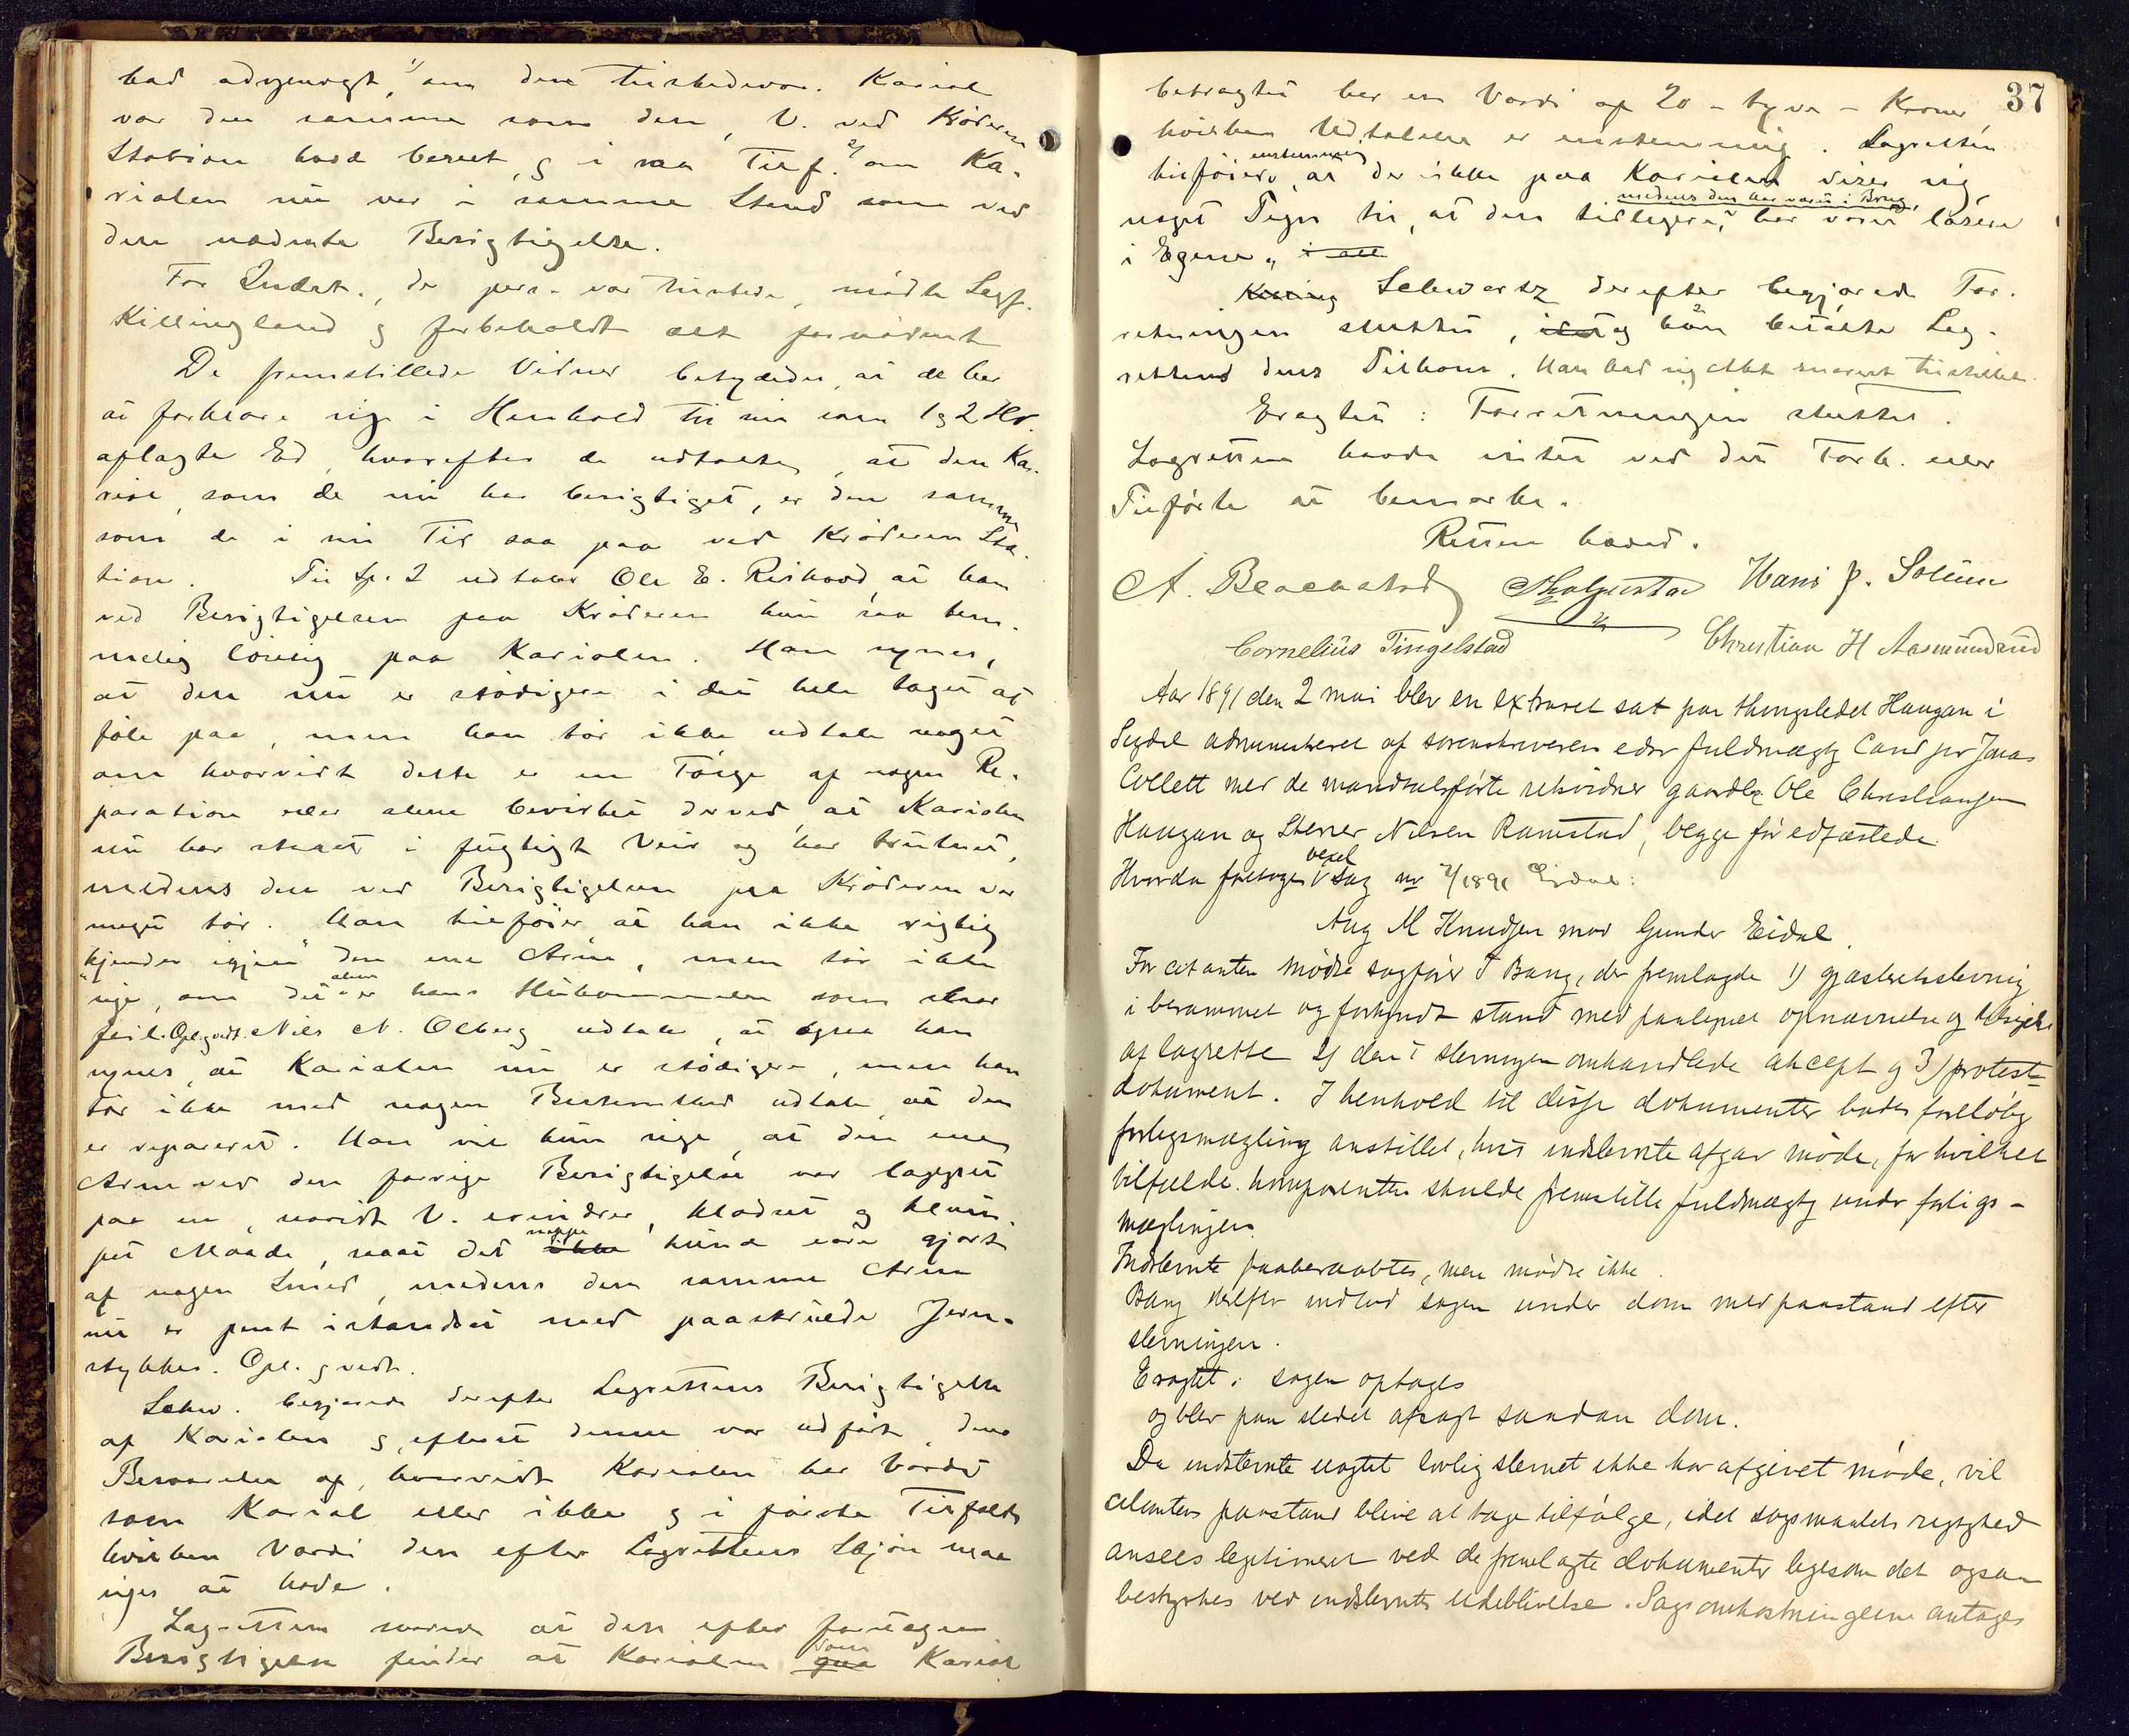 bad adspurgt, 1/ om den tilstedevær. Kariol
var den samme som den, V. ved Krøderen
Station havde beseet, og i saa Tilf. 2/ om Ka-
riolen nu var i samme Stand som ved
den nævnte Besigtigelse.
For Indst., der pers. var tilstede, mødte Sagf.
Killingland og forbeholdt alt fornødent
De fremstillede Vidner betydedes, at de har
at forklare sig i Henhold til sin som 1 og 2 Hv.
aflagte Ed, hvorefter de udtalte, at den Ka-
riol, som de nu har besigtiget, er den samme
som de i sin Tid saa paa ved Krøderen Sta-
tion. Til Sp. 2 udtaler Ole E. Rishovd, at han
ved Besigtigelsen paa Krøderen kun saa tem-
melig løselig paa Kariolen. Han synes,
at den nu er stødigere i det hele taget at
føle paa, men han tør ikke udtale noget
om hvorvidt dette er en Følge af nogen Re-
paration eller alene bevirket derved, at Kariolen
nu har staaet i fugtigt Veir og har trutnet,
medens den ved Besigtigelsen paa Krøderen var
meget tør. Han tilføier at han ikke rigtig
"kjender igjen" den ene Arm, men tør ikke
sige, om det alene er hans Hukommelse som slaar
feil. Opl. gvedt. Niels N. Olberg udtaler, at ogsaa han
synes, at Kariolen nu er stødigere, men han
tør ikke med nogen Bestemthed udtale, at den
er repareret. Han vil kun sige, at den ene
Arm ved den forrige Besigtigelse var lappet
paa en, saavidt V. erindrer, klodset og klum-
pet Maade, saa at det ikke neppe kunde være gjort
af nogen Smed, medens den samme Arm
nu er pent istandsat med paaskruede Jern-
stykker. Opl. gvedt.
Schw. begjærede derefter Lagrettens Besigtigelse
af Kariolen og, efterat denne var udført, dens
Besvarelse af, hvorvidt Kariolen har Værdi
som Kariol eller ikke og i første Tilfælde
hvilken Værdi den efter Lagrettens Skjøn maa
siges at have.
Lagretten svarede at den efter foretagen
Besigtigelse finder at Kariolen qua som Kariol
37
betragtet har en Værdi af 20 - tyve - Kroner
hvilken Udtalelse er enstemmig. Lagretten
tilføiede enstemmig, at der ikke paa Kariolen viser sig
noget Tegn til, at den tidligere, medens den har været i Brug, har været løsere
i Egerne,, i all
Schwartz derefter begjærede For-
retningen sluttet, idet og han betalte Lag-
rettens dens Tilkom. Han bad sig Akt snarest tilstillet.
Eragtet: Forretningen sluttet.
Lagretten havde intet ved det Forh. eller
Tilførte at bemærke.
Retten hævet.
A. Blackstad Hans P. Solum
Cornelius Tingelstad Christian H Aasmundrud
Aar 1891 den 2 mai blev en extraret sat paa thingstedet Haugan i
Sigdal administreret af sorenskriverens edsv fuldmægtig Cand jur Jonas
Collett med de mandtalsførte retsvidner gaardbr Ole Christiansen
Haugan og Stener Nilsen Ramstad, begge før edfæstede
Hvorda foretoges vexel Sag nr 2/1891 Eidal:
Aug M Knudsen mod Gunder Eidal.
For citanten mødte sagfører T Bang, der fremlagde 1) gjæsteretsstevning
i berammet og forkyndt stand med paategnet opnævnelse og tilsigelse
af lagrette 2) den i stevningen omhandlede akcept og 3) protest-
dokument. I henhold til disse dokumenter bades foreløbig
forligsmægling anstillet, hvis indstevnte afgav møde, for hvilket
tilfælde komparenten skulde fremstille fuldmægtig under forligs-
mæglingen.
Indstevnte paaberaabtes, men mødte ikke.
Bang derefter indlod sagen under dom med paastand efter
stevningen.
Eragtet: sagen optages
og blev paa stedet afsagt saadan dom.
Da indstevnte uagtet lovlig stevnet ikke har afgivet møde, vil
citantens paastand blive at tage tilfølge, idet søgsmaalets rigtighed
ansees legitimeret ved de fremlagte dokumenter ligesom det ogsaa
bestyrkes ved indstevntes udeblivelse. Sagsomkostningerne antages